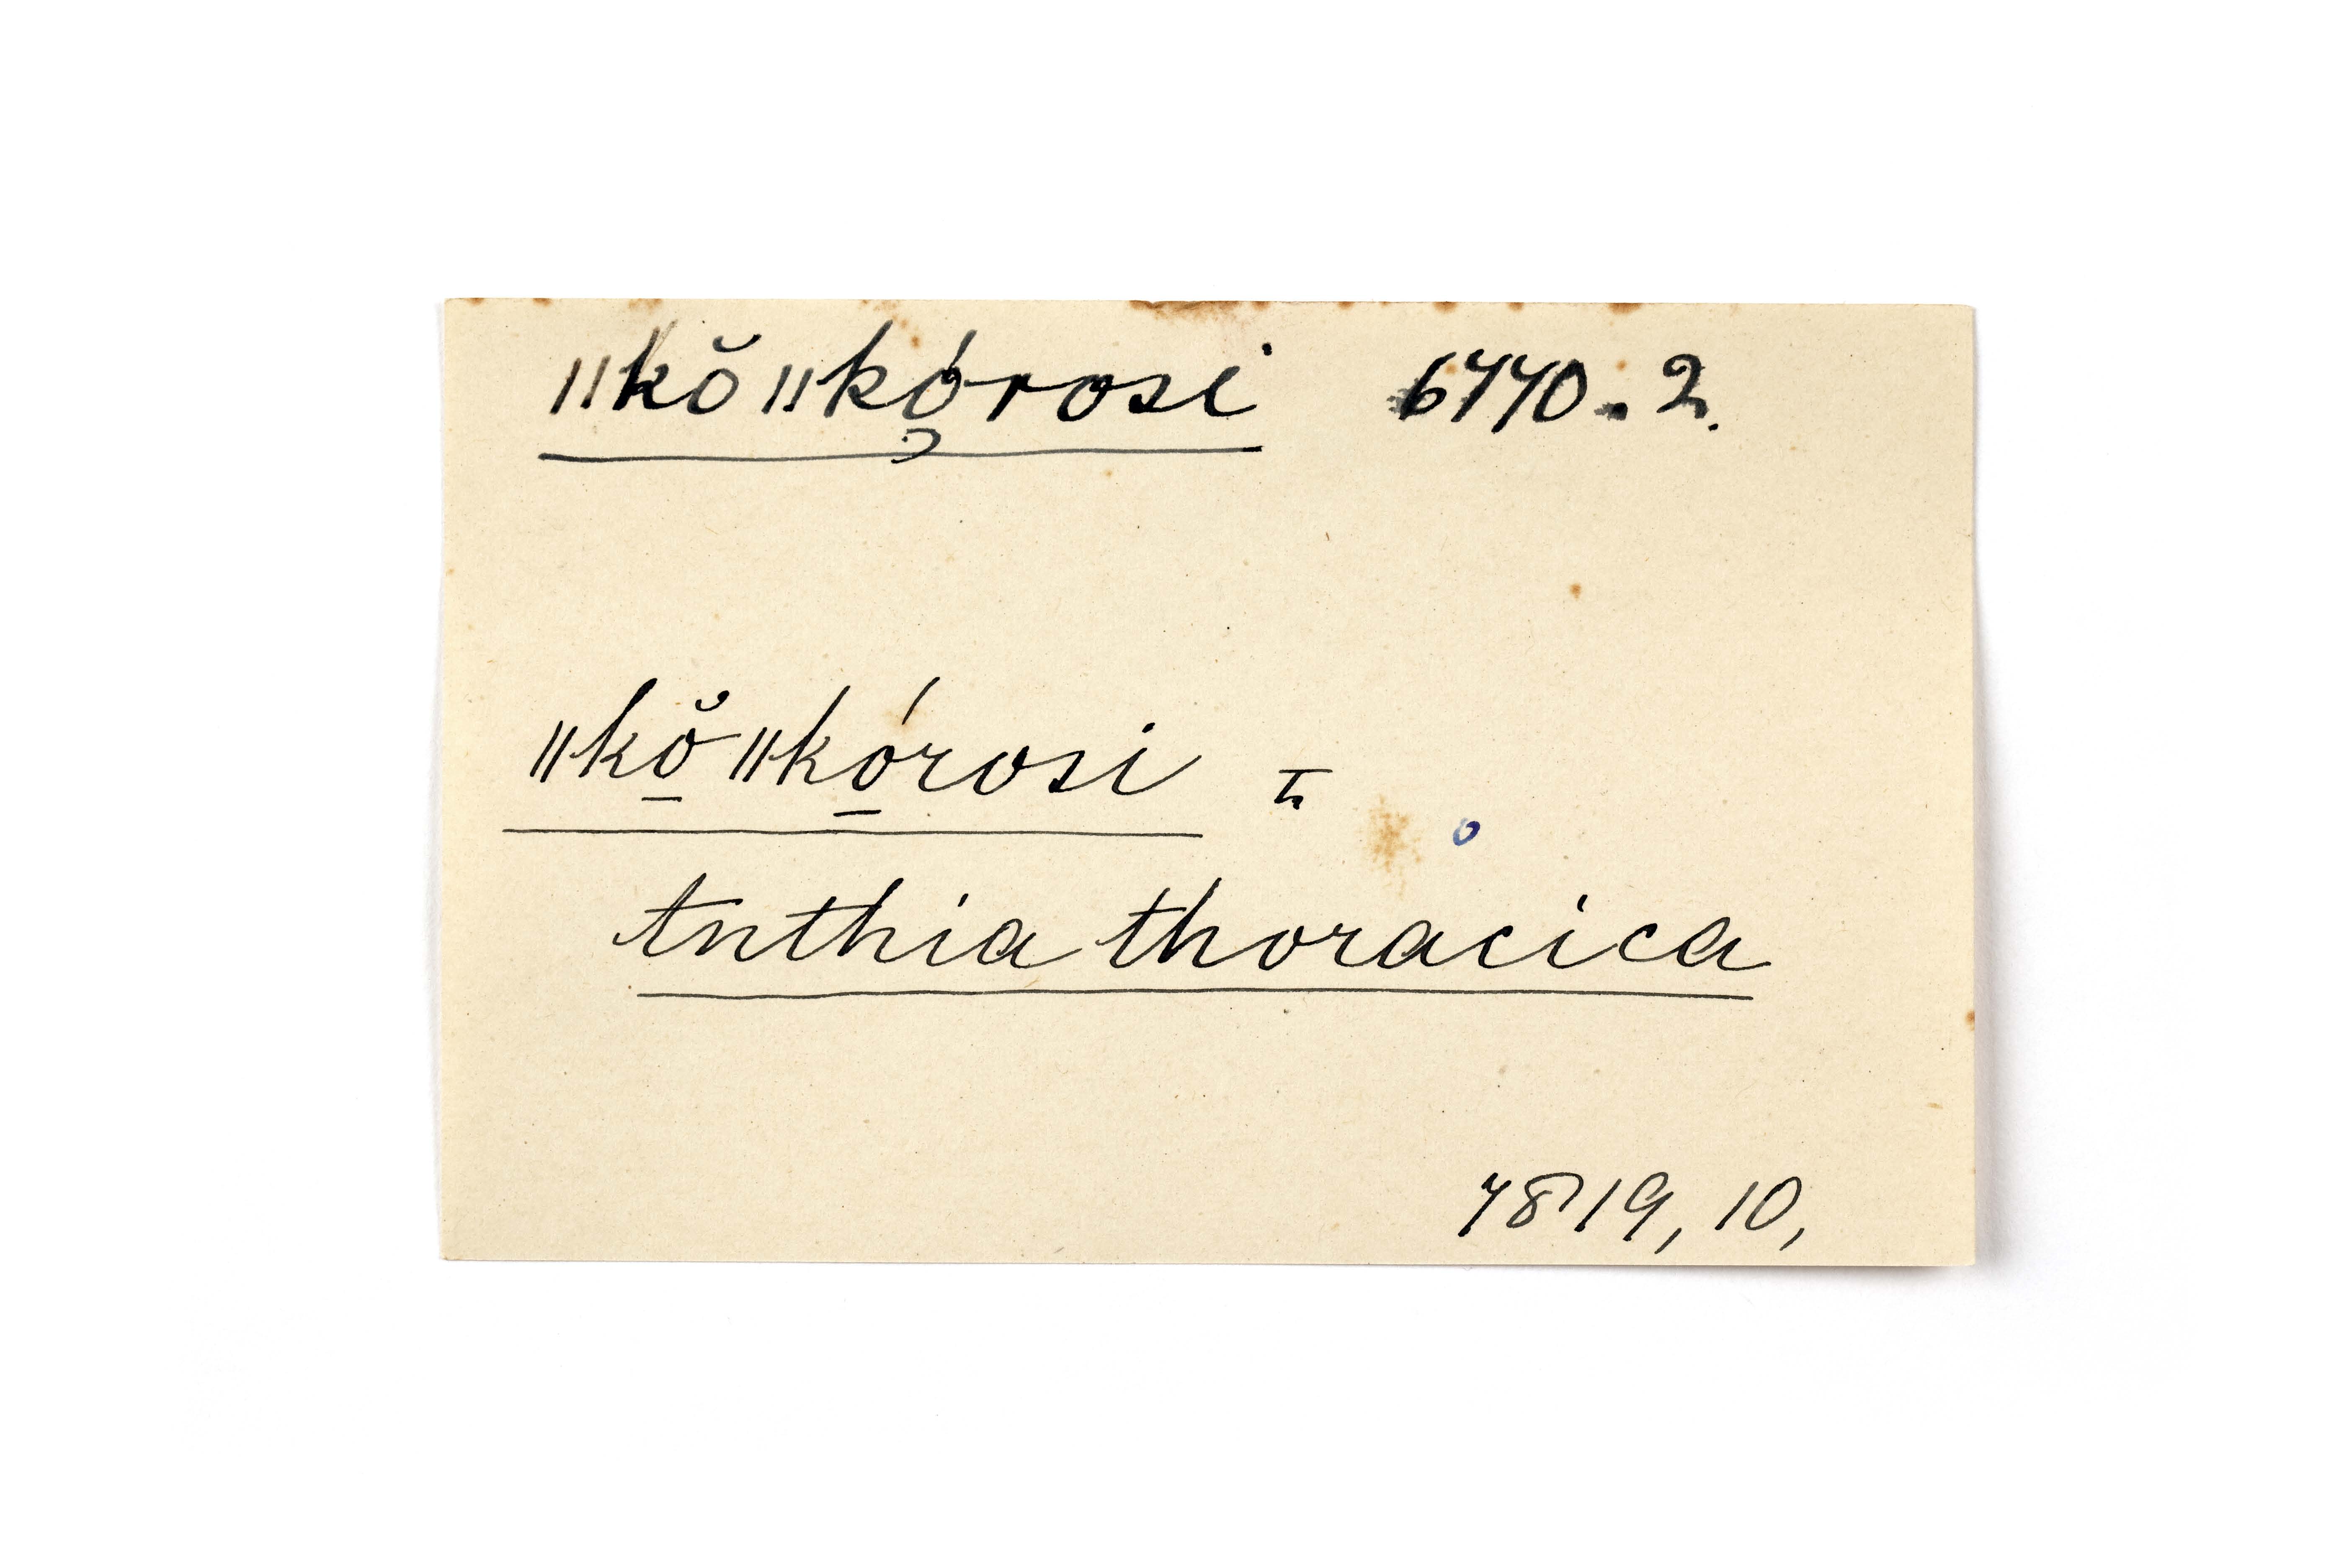 ǁkŏǁkǫ́rosi 6770.2.
ǁkŏ̱ǁkó̱rosi =
Anthia thoracica
7819, 10,